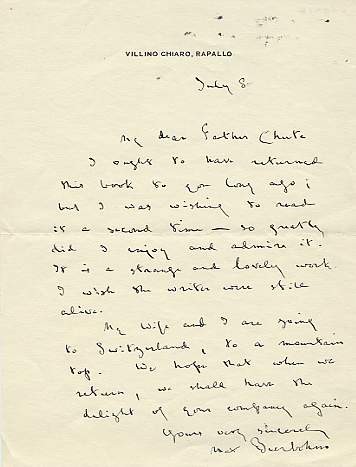 VILLINO CHIARO, RAPALLO
July 8
My dear Father Chute
I ought to have returned
this book to you long ago;
but I was wishing to read
it a second time — so greatly
did I enjoy and admire it.
It is a strange and lovely work.
I wish the writer were still
alive.
My wife and I are going
to Switzerland, to a mountain
top. We hope that when we
return, we shall have the
delight of your company again.
Yours very sincerely
Max Beerbohm